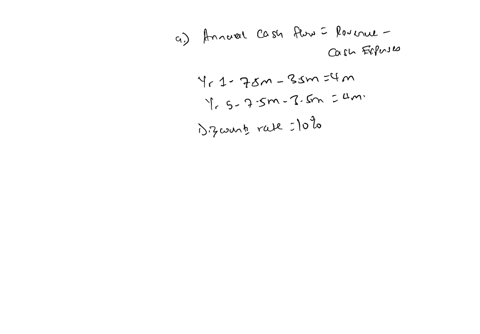 a.) Annual Cash flow = Revenue -
Cash Expenses
Yr 1 - 7.5m - 3.5m = 4m
Yr 5 - 7.5m - 3.5m = 4m.
Discount rate = 10%